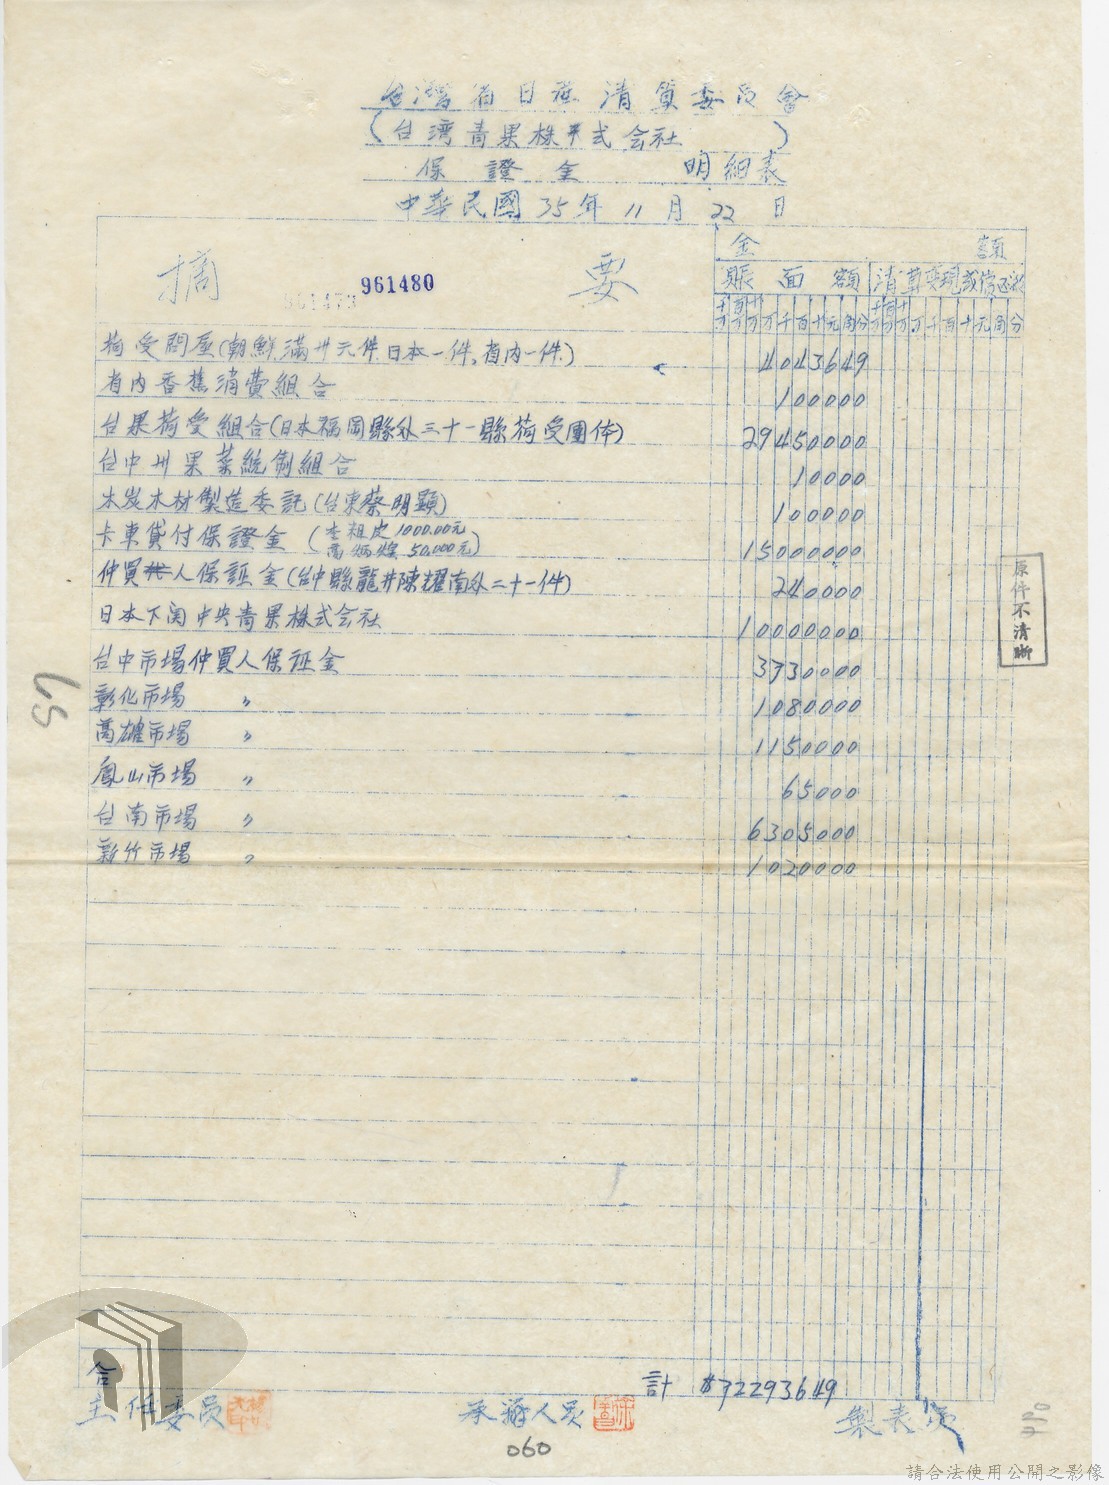 台灣省日產清算委員會
(台湾青果株式会社)
保證金 明細表
中華民國35年11月22日
摘要
961480
金額
賬面額 清算變現或償还額
千万 百万 十万 万 千 百 十 元 角 分 千万 百万 十万 万 千 百 十 元 角 分
荷受問屋(朝鮮滿卅元件 日本一件、省内一件) 4043649
省内香蕉消費組合 100000
台果荷受組合(日本福岡縣外三十一縣荷受團体) 29450000
台中州果菜統制組合 10000
木炭木材製造委託(台東蔡明顯) 100000
卡車貸付保證金 15000000
(李粗皮 1000.00元
高炳煌 50,000元)
仲買人保証金(台中縣龍井陳耀南外二十一件) 240000
日本下関中央青果株式会社 10000000
台中市場仲買人保証金 3730000
彰化市場 〃 1080000
高雄市場 〃 1150000
鳳山市場 〃 65000
台南市場 〃 6305000
新竹市場 〃 1020000
原件不清晰
59
合計 $72293649
主任委員 承辦人員 製表員
060
請合法使用公開之影像